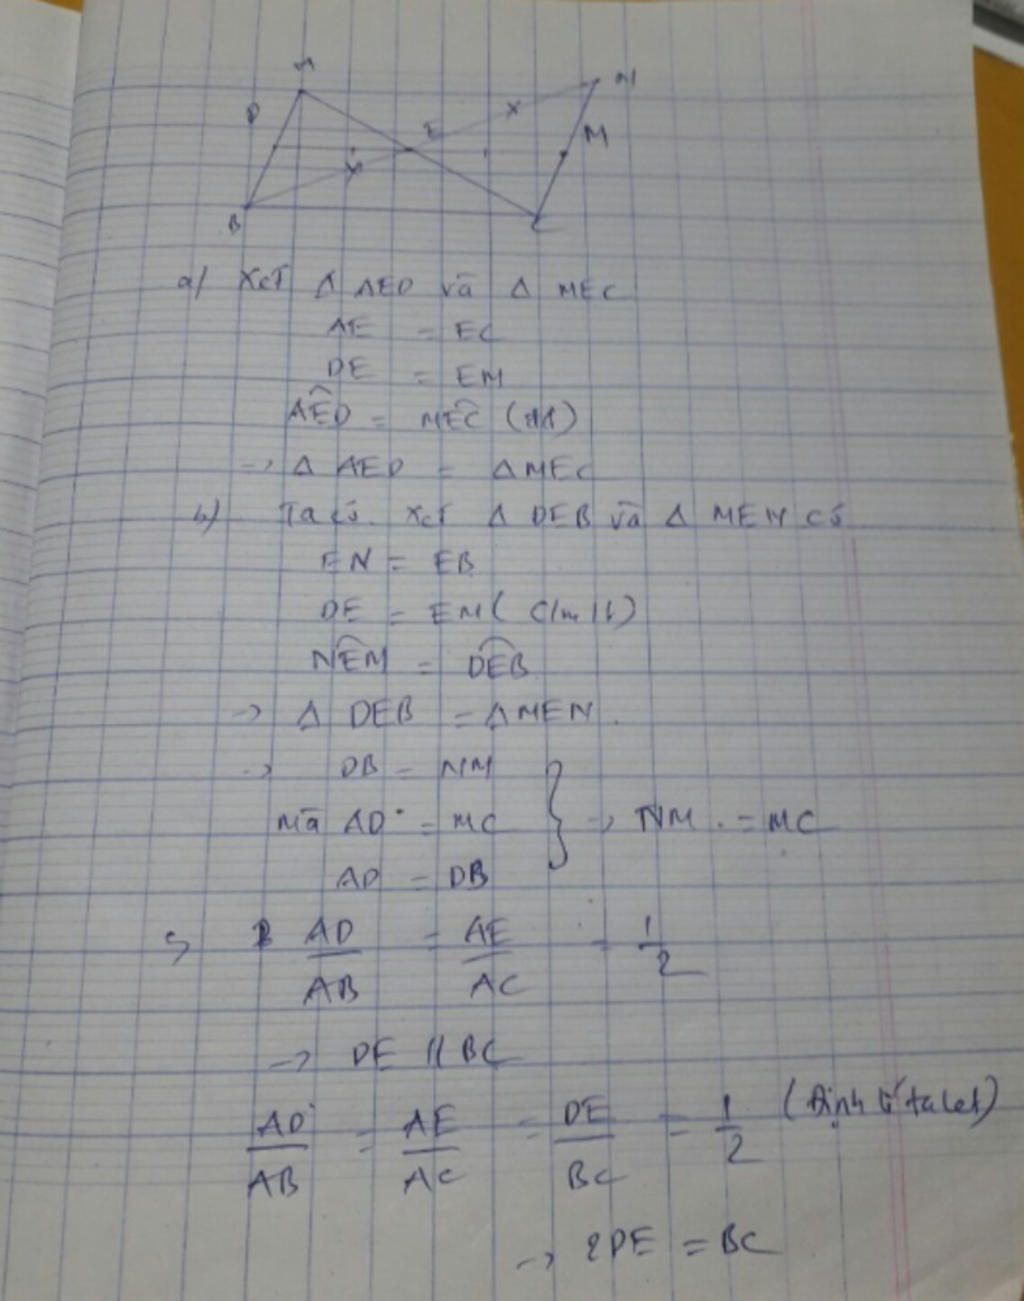 A
N
D
E
M
B
C
a/ Xét Δ AED và Δ MEC
AE = EC
DE = EM
AED = MEC (đđ)
→ Δ AED = Δ MEC
b) Ta có. Xét Δ DEB và Δ MEN có
EN = EB
DE = EM ( C/m
NEM = DEB
→ Δ DEB = Δ MEN.
→ DB = NM
mà AD = MC } → NM = MC
AD = DB
AD/AB = AE/AC = 1/2
→ DE // BC
AD/AB = AE/AC = DE/BC = 1/2 (Định lí talet)
→ 2DE = BC